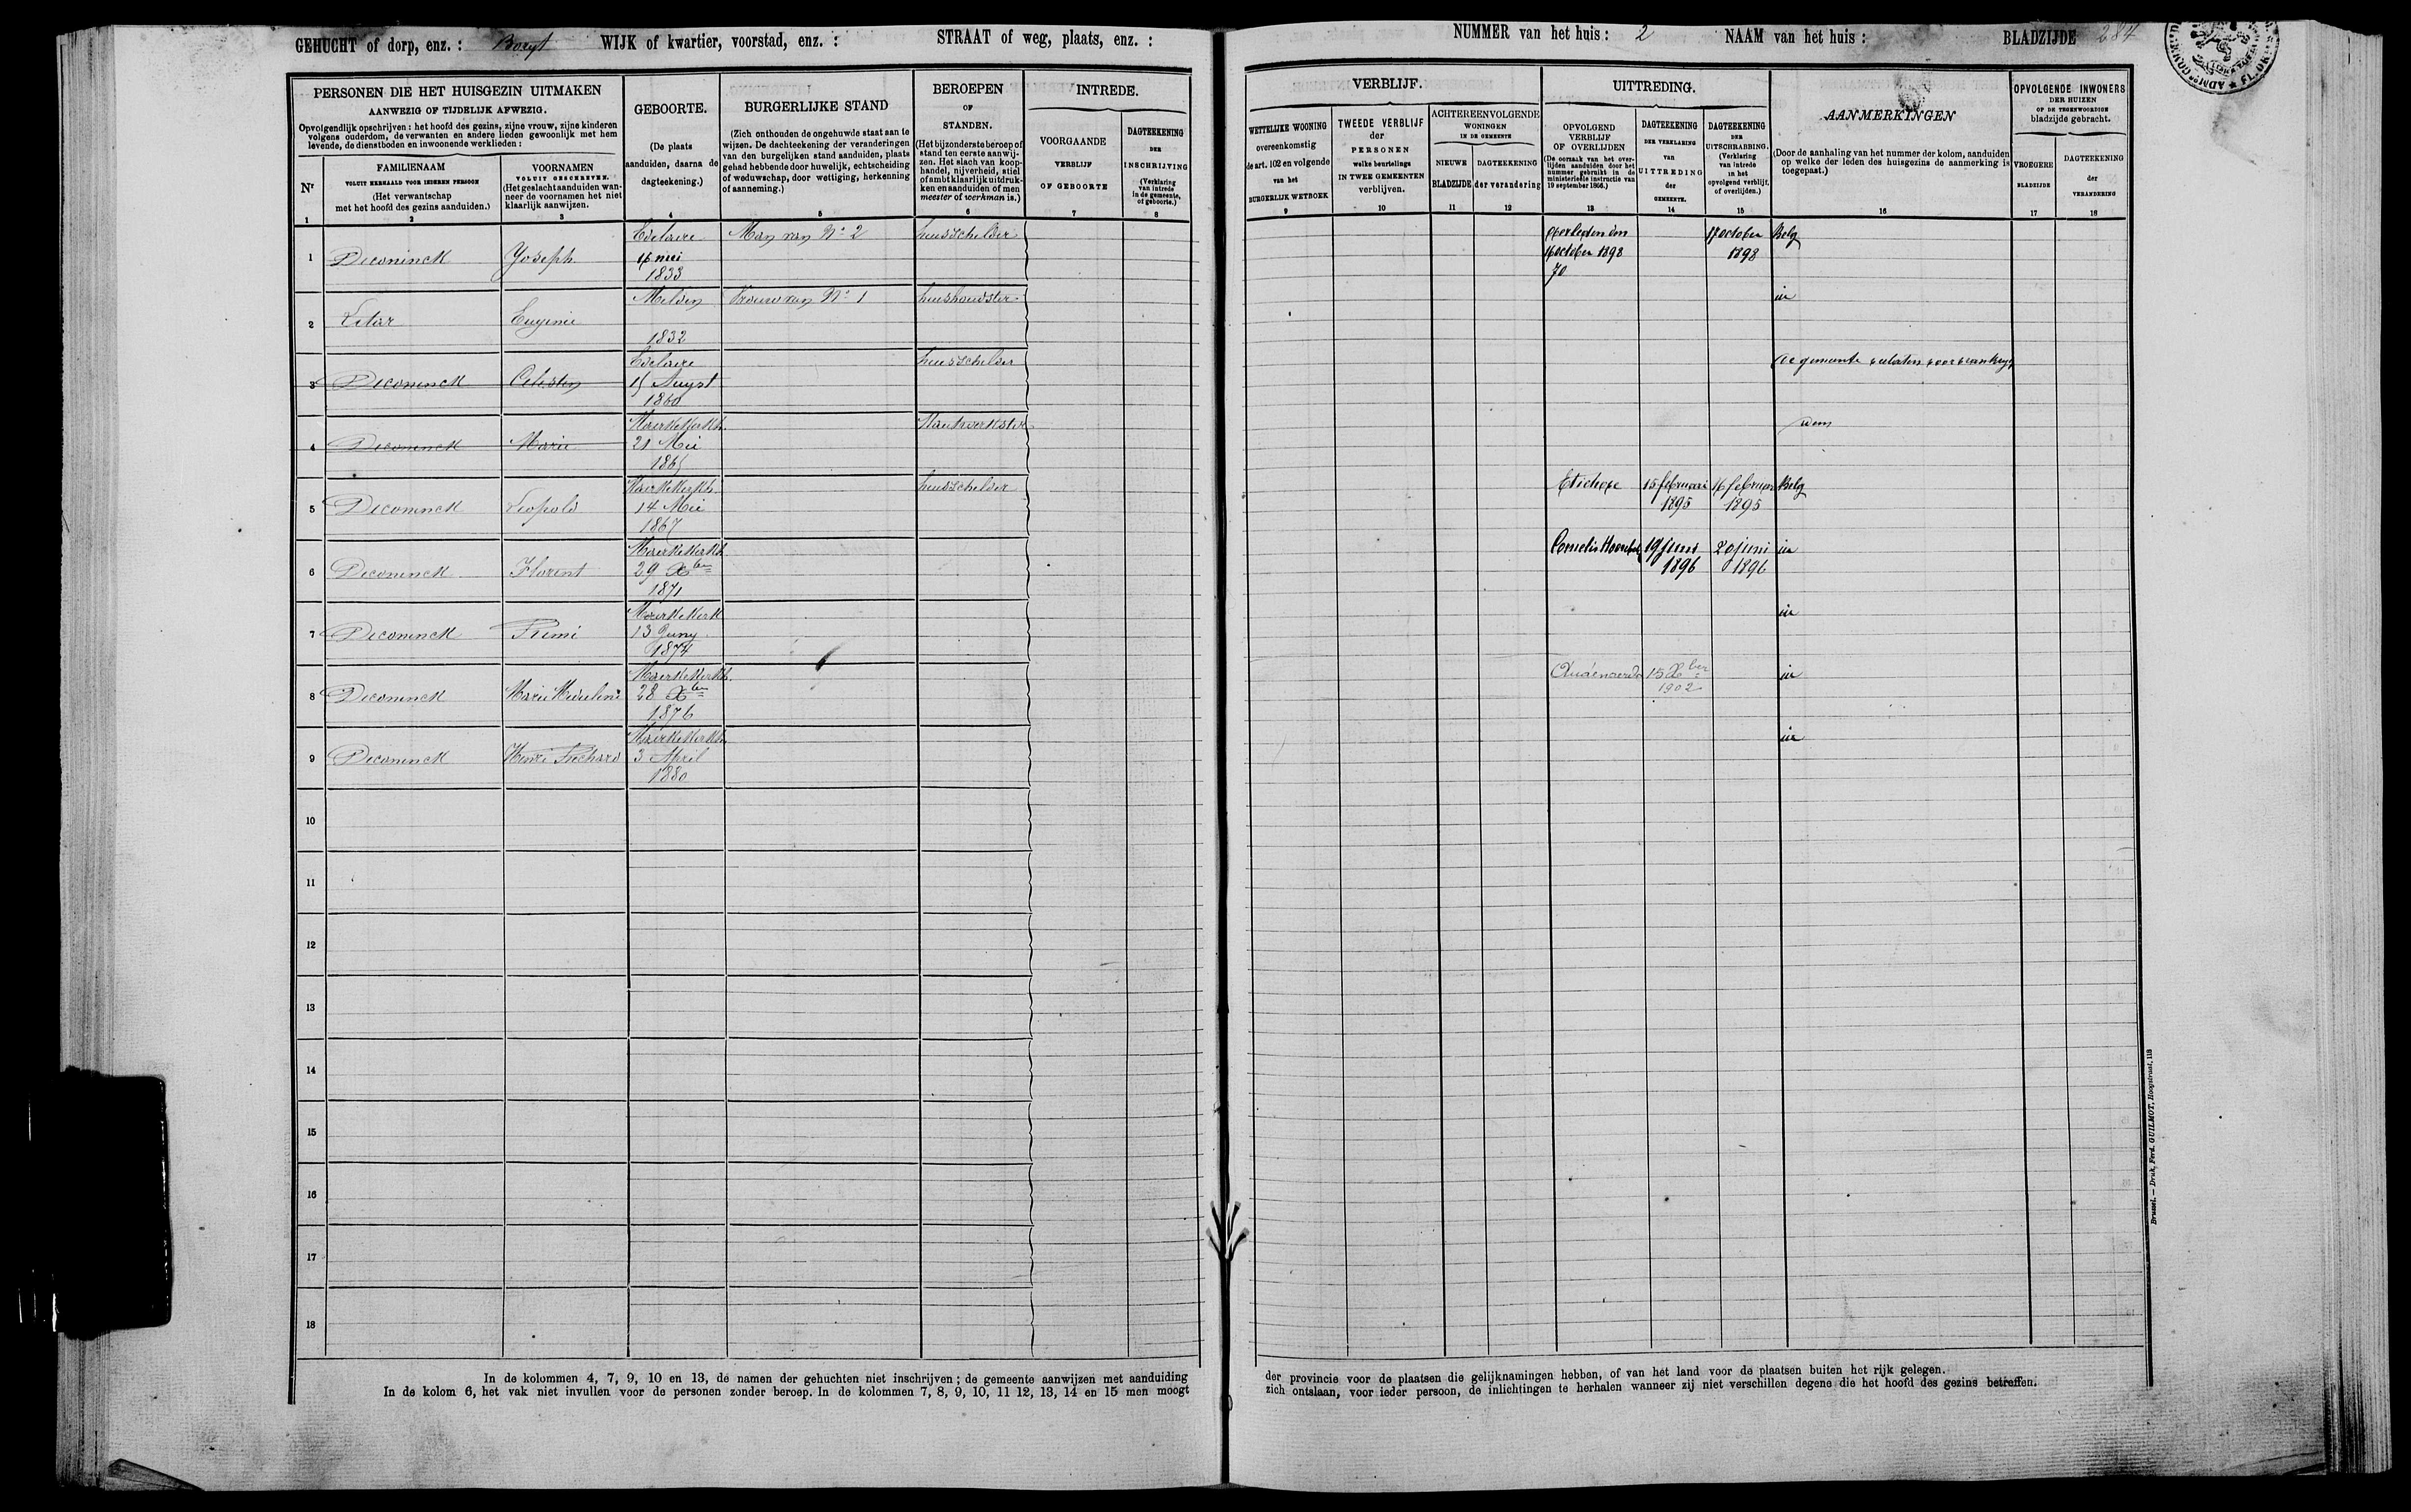 GEHUCHT of dorp, enz. : Boeyt WIJK of kwartier, voorstad, enz. : STRAAT of weg, plaats, enz. :
PERSONEN DIE HET HUISGEZIN UITMAKEN
AANWEZIG OF TIJDELIJK AFWEZIG.
Opvolgendlijk opschrijven : het hoofd des gezins, zijne vrouw, zijne kinderen
volgens ouderdom, de verwanten en andere lieden gewoonlijk met hem
levende, de dienstboden en inwoonende werklieden :
Nr
FAMILIENAAM
VOLUIT HERHAALD VOOR IEDEREN PERSOON
(Het verwantschap
met het hoofd des gezins aanduiden.)
VOORNAMEN
VOLUIT GESCHREVEN.
(Het geslacht aanduiden wan-
neer de voornamen het niet
klaarlijk aanwijzen.
GEBOORTE.
(De plaats
aanduiden, daarna de
dagteekening.)
BURGERLIJKE STAND
(Zich onthouden de ongehuwde staat aan te
wijzen. De dachteekening der veranderingen
van den burgelijken stand aanduiden, plaats
gehad hebbende door huwelijk, echtscheiding
of weduwschap, door wettiging, herkenning
of aanneming.)
BEROEPEN
OF
STANDEN.
(Het bijzonderste beroep of
stand ten eerste aanwij-
zen. Het slach van koop-
handel, nijverheid, stiel
of ambt klaarlijk uitdruk-
ken en aanduiden of men
meester of werkman is.)
INTREDE.
VOORGAANDE
VERBLIJF
OF GEBOORTE
DAGTEEKENING
DER
INSCHRIJVING
(Verklaring
van intrede
in de gemeente,
of geboorte.)
1 2 3 4 5 6 7 8
Edelaere Man van No 2 huisschelder
1 Deconinck Joseph 16 mei
1833
Melden Vrouw van No 1 huishoudster
2 Eugenie
1832
Edelaere huisschelder
3 Deconinck Celestin 15 Augst
1860
Maerkekerkh.
4 Deconinck Marie 21 Mei
1865
Maerkekerkh. huisschelder
5 Deconinck Leopold 14 Mei
1867
Maerkekerkh.
6 Deconinck Florent 29 Xber
1871
Maerkekerk
7 Deconinck Remi 13 Juny
1874
Maerkekerkh.
8 Deconinck Marie 28 Xber
1876
Maerkekerkh.
9 Deconinck Henri Richard 3 April
1880
10
11
12
13
14
15
16
17
18
In de kolommen 4, 7, 9, 10 en 13, de namen der gehuchten niet inschrijven ; de gemeente aanwijzen met aanduiding
In de kolom 6, het vak niet invullen voor de personen zonder beroep. In de kolommen 7, 8, 9, 10, 11 12, 13, 14 en 15 men moogt
NUMMER van het huis : 2 NAAM van het huis : BLADZIJDE 284
VERBLIJF.
WETTELIJKE WOONING
overeenkomstig
de art. 102 en volgende
van het
BURGERLIJK WETBOEK
TWEEDE VERBLIJF
der
PERSONEN
welke beurtelings
IN TWEE GEMEENTEN
verblijven.
ACHTEREENVOLGENDE
WONINGEN
IN DE GEMEENTE
NIEUWE
BLADZIJDE
DAGTEEKENING
der verandering
UITTREDING.
OPVOLGEND
VERBLIJF
OF OVERLIJDEN
(De oorzaak van het over-
lijden aanduiden door het
nummer gebruikt in de
ministerieële instructie van
19 september 1866.)
DAGTEEKENING
DER VERKLARING
van
UITTREDING
der
GEMEENTE.
DAGTEEKENING
DER
UITSCHRABBING.
(Verklaring
van intrede
in het
opvolgend verblijf,
of overlijden.)
AANMERKINGEN
(Door de aanhaling van het nummer der kolom, aanduiden
op welke der leden des huisgezins de aanmerking is
toegepast.)
OPVOLGENDE INWONERS
DER HUIZEN
OP DE TEGENWOORDIGE
bladzijde gebracht.
VROEGERE
BLADZIJDE
DAGTEEKENING
der
VERANDERING
9 10 11 12 13 14 15 16 17 18
Overleden den 17 october Belg
16 october 1898 1898
70
id
de gemeente verlaten voor frankryk
idem
Etichove 15 februari 16 februari Belg
1895 1895
Cornelis Hoorebeke 19 juni 20 juni id
1896 1896
id
Audenaerde 15 Xber id
1902
id
der provincie voor de plaatsen die gelijknamingen hebben, of van het land voor de plaatsen buiten het rijk gelegen.
zich ontslaan, voor ieder persoon, de inlichtingen te herhalen wanneer zij niet verschillen degene die het hoofd des gezins betreffen.
Brussel. — Druk. Ferd. GUILMOT, Hoogstraat, 118